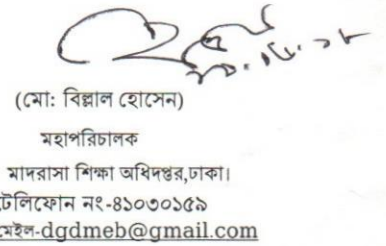 (মো: বিল্লাল হোসেন)
মহাপরিচালক
মাদরাসা শিক্ষা অধিদপ্তর,ঢাকা।
টেলিফোন নং-৪১০৩০১৫৯
মেইল-dgdmeb@gmail.com